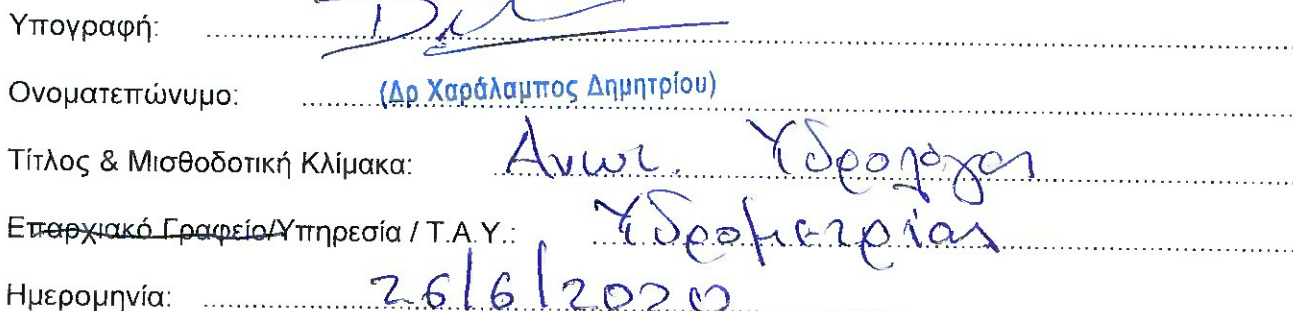 Υπογραφή:
Ονοματεπώνυμο: (Δρ Χαράλαμπος Δημητρίου)
Τίτλος & Μισθοδοτική Κλίμακα: Ανωτ. Υδρολόγος
Επαρχιακό Γραφείο/Υπηρεσία / Τ.Α.Υ.: Υδρομετρίας
Ημερομηνία: 26/6/2020